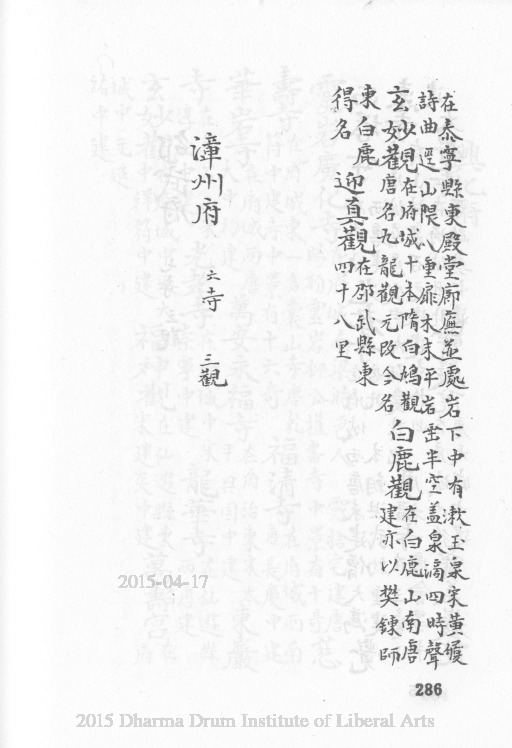 在泰寧縣東殿堂廊廡並處岩下中有漱玉泉宋黃
詩曲逕山隈八重扉木末平岩半空蓋泉滴四時聲
玄妙觀在府城十本隋白鳩觀
唐名九龍觀元改今名
白鹿觀在白鹿山南唐
建亦以樊鍊師
東白鹿
得名
迎真觀在邵武縣東
四十八里
漳州府 六寺 三觀
2015-04-17
286
2015 Dharma Drum Institute of Liberal Arts